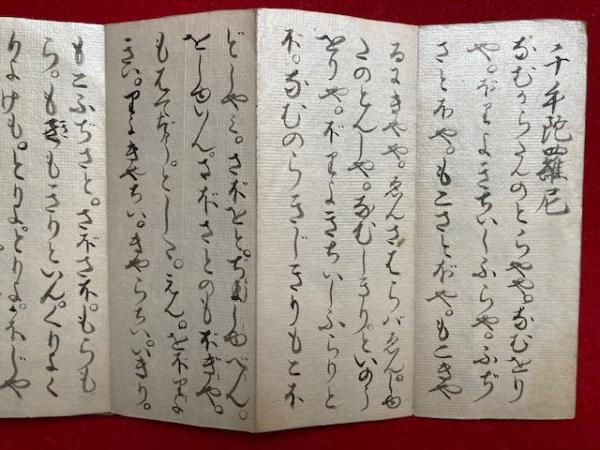 千手陀羅尼
なむからたんのとらやや。なむをり
や。ぼりよきちいしふらや。ふぢ
さとぼや。もこさとぼや。もこきや
るにきやや。ゑんさはらばゑん。しゆ
たのとんしや。なむしきり。といのう
をりや。ぼりよきちいしふらりと
ぼ。なむのらきじきりもこほ
どしやミ。さぼをと。ぢよしゆべん。
をしゆいん。さぼさとのもぼぎや。
もはてちう。とした。ゑん。をぼりよ
きい。りよきやちい。きやらちい。いきり。
もこふぢさと。さぼさぼ。もらも
ら。もきもきりといん。くりよく
りよけも。とりよ。とりよ。ほじや